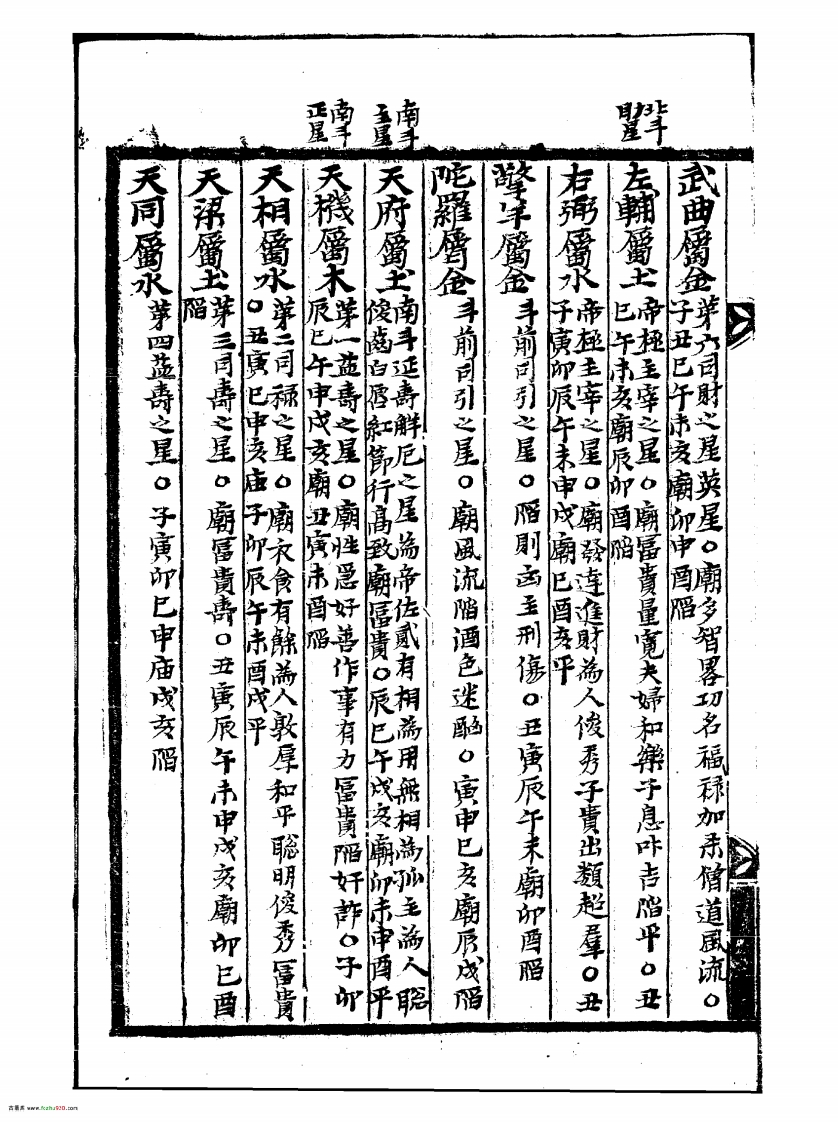 北斗
助星
武曲屬金
第六司財之星英星○廟多智畧功名福祿加杀僧道風流○
子丑巳午未亥廟卯申酉陷
左輔屬土
帝極主宰之星○廟冨貴量寬夫婦和樂子息叶吉陷平○丑
巳午未亥廟辰卯酉陷
右弼屬水
帝極主宰之星○廟發達進財為人俊秀子貴出類超羣○丑
子寅卯辰午未申戌廟巳酉亥平
擎羊屬金
斗前司引之星○陷則凶主刑傷○丑寅辰午未廟卯酉陷
陀羅屬金
斗前司引之星○廟風流陷酒色迷○寅申巳亥廟辰戌陷
南斗
主星
天府屬土
南斗延壽解厄之星為帝佐貳有相為用無相為孤主為人聡
俊齒白唇紅節行高致廟冨貴○辰巳午戌亥廟卯未申酉平
南斗
正星
天機屬木
第一益壽之星○廟性急好善作事有力冨貴陷奸詐○子卯
辰巳午申戌亥廟丑寅未酉陷
天相屬水
第二司祿之星○廟衣食有餘為人敦厚和平聡明俊秀冨貴
○丑寅巳申亥庙子卯辰午未酉戌平
天梁屬土
第三司壽之星○廟冨貴壽○丑寅辰午未申戌亥廟卯巳酉
陷
天同屬水
第四益壽之星○子寅卯巳申庙戌亥陷
古易库 www.fozhu920.com